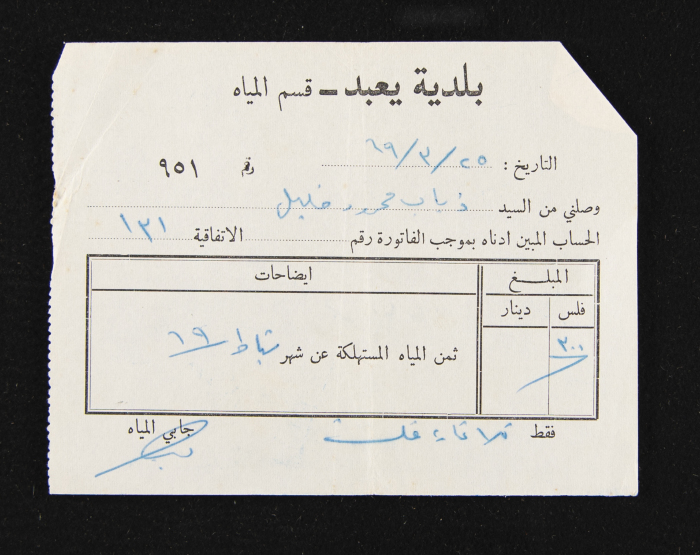 بلدية يعبد ــ قسم المياه
التاريخ : ٢٥/٣/٦٩ رقم ٩٥١
وصلني من السيد ذياب محمود خليل
الحساب المبين ادناه بموجب الفاتورة رقم الاتفاقية ١٣١
المبلــغ ايضاحات
فلس دينار
٣٠٠ ثمن المياه المستهلكة عن شهر شباط ٦٩
فقط ثلاثماءة فلس جابي المياه